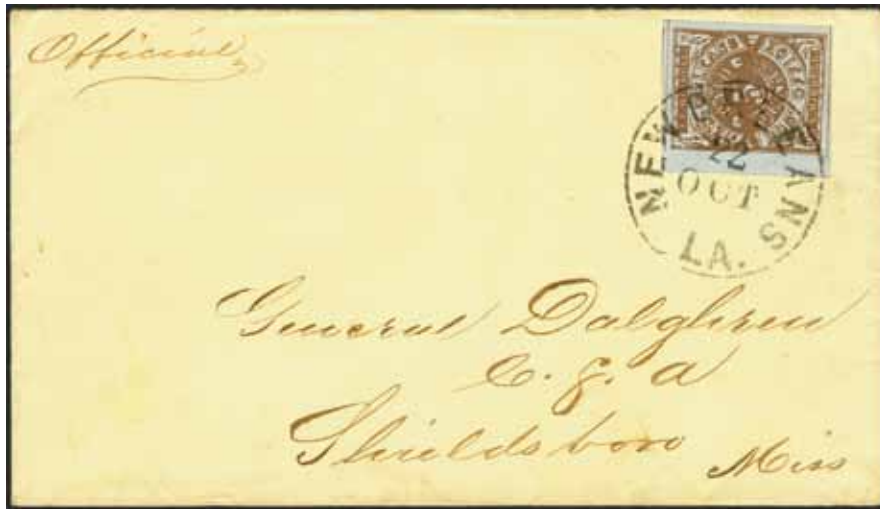 Official
NEW ORLEANS
22
OCT
LA.
General Dalghren
C. S. A
Shieldsboro Miss